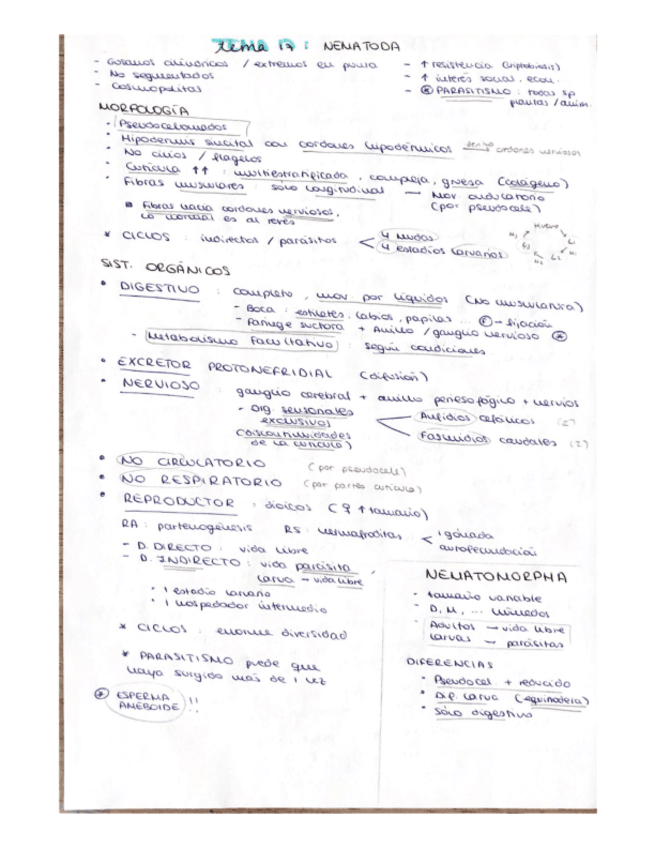 tema 17: NEMATODA
- Gusanos cilíndricos / extremos en punta
- No segmentados
- Cosmopolitas
- ↑ resistencia (criptobiosis)
- ↑ interés social, econ.
- * PARASITISMO: todas sp
plantas / anim.
MORFOLOGÍA
· Pseudocelomados
· Hipodermis sincitial con cordones hipodérmicos cordones nerviosos
· No cilios / flagelos
· Cutícula ↑↑ : multiestratificada, compleja, gruesa (colágeno)
· Fibras musculares: sólo longitudinal → Mov. ondulatorio
(por pseudocele)
Fibras hacia cordones nerviosos,
lo normal es al revés
* CICLOS: indirectos / parásitos < 4 mudas
4 estadios larvarios
Huevo
L1
L2
SIST. ORGÁNICOS
• DIGESTIVO: completo, mov. por líquidos (No musculatura)
- Boca: estiletes, labios, papilas... → fijación
- Faringe suctora + Anillo / ganglio nervioso *
- Metabolismo facultativo: según condiciones
• EXCRETOR PROTONEFRIDIAL (difusión)
• NERVIOSO: ganglio cerebral + anillo periesofágico + nervios
- Org. sensoriales
exclusivos
(discontinuidades
de la cutícula)
Anfidios cefálicos (2)
Fasmidios caudales (2)
• NO CIRCULATORIO (por pseudocele)
• NO RESPIRATORIO (por partes cutícula)
• REPRODUCTOR: dioicos (♀ ↑ tamaño)
RA: partenogénesis RS: hermafroditas < 1 gónada
autofecundación
- D. DIRECTO: vida libre
- D. INDIRECTO: vida parásita,
larva → vida libre
· 1 estadio larvario
· 1 hospedador intermedio
* CICLOS: enorme diversidad
* PARASITISMO puede que
haya surgido más de 1 vez
* ESPERMA
AMEBOIDE !!
NEMATOMORPHA
· tamaño variable
· D, M, ... húmedos
· Adultos → vida libre
larvas → parásitas
DIFERENCIAS
· Pseudocel. + reducido
· Dif. larva (equinodera)
· Sólo digestivo